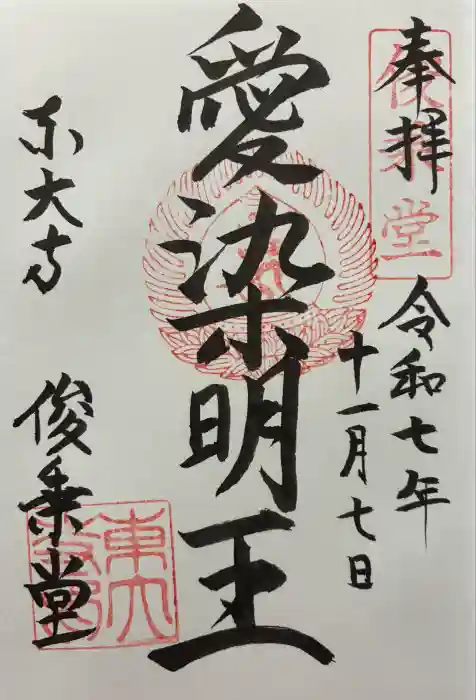 奉拝
俊乗堂
令和七年
十一月七日
愛染明王
東大寺
俊乗堂
東大